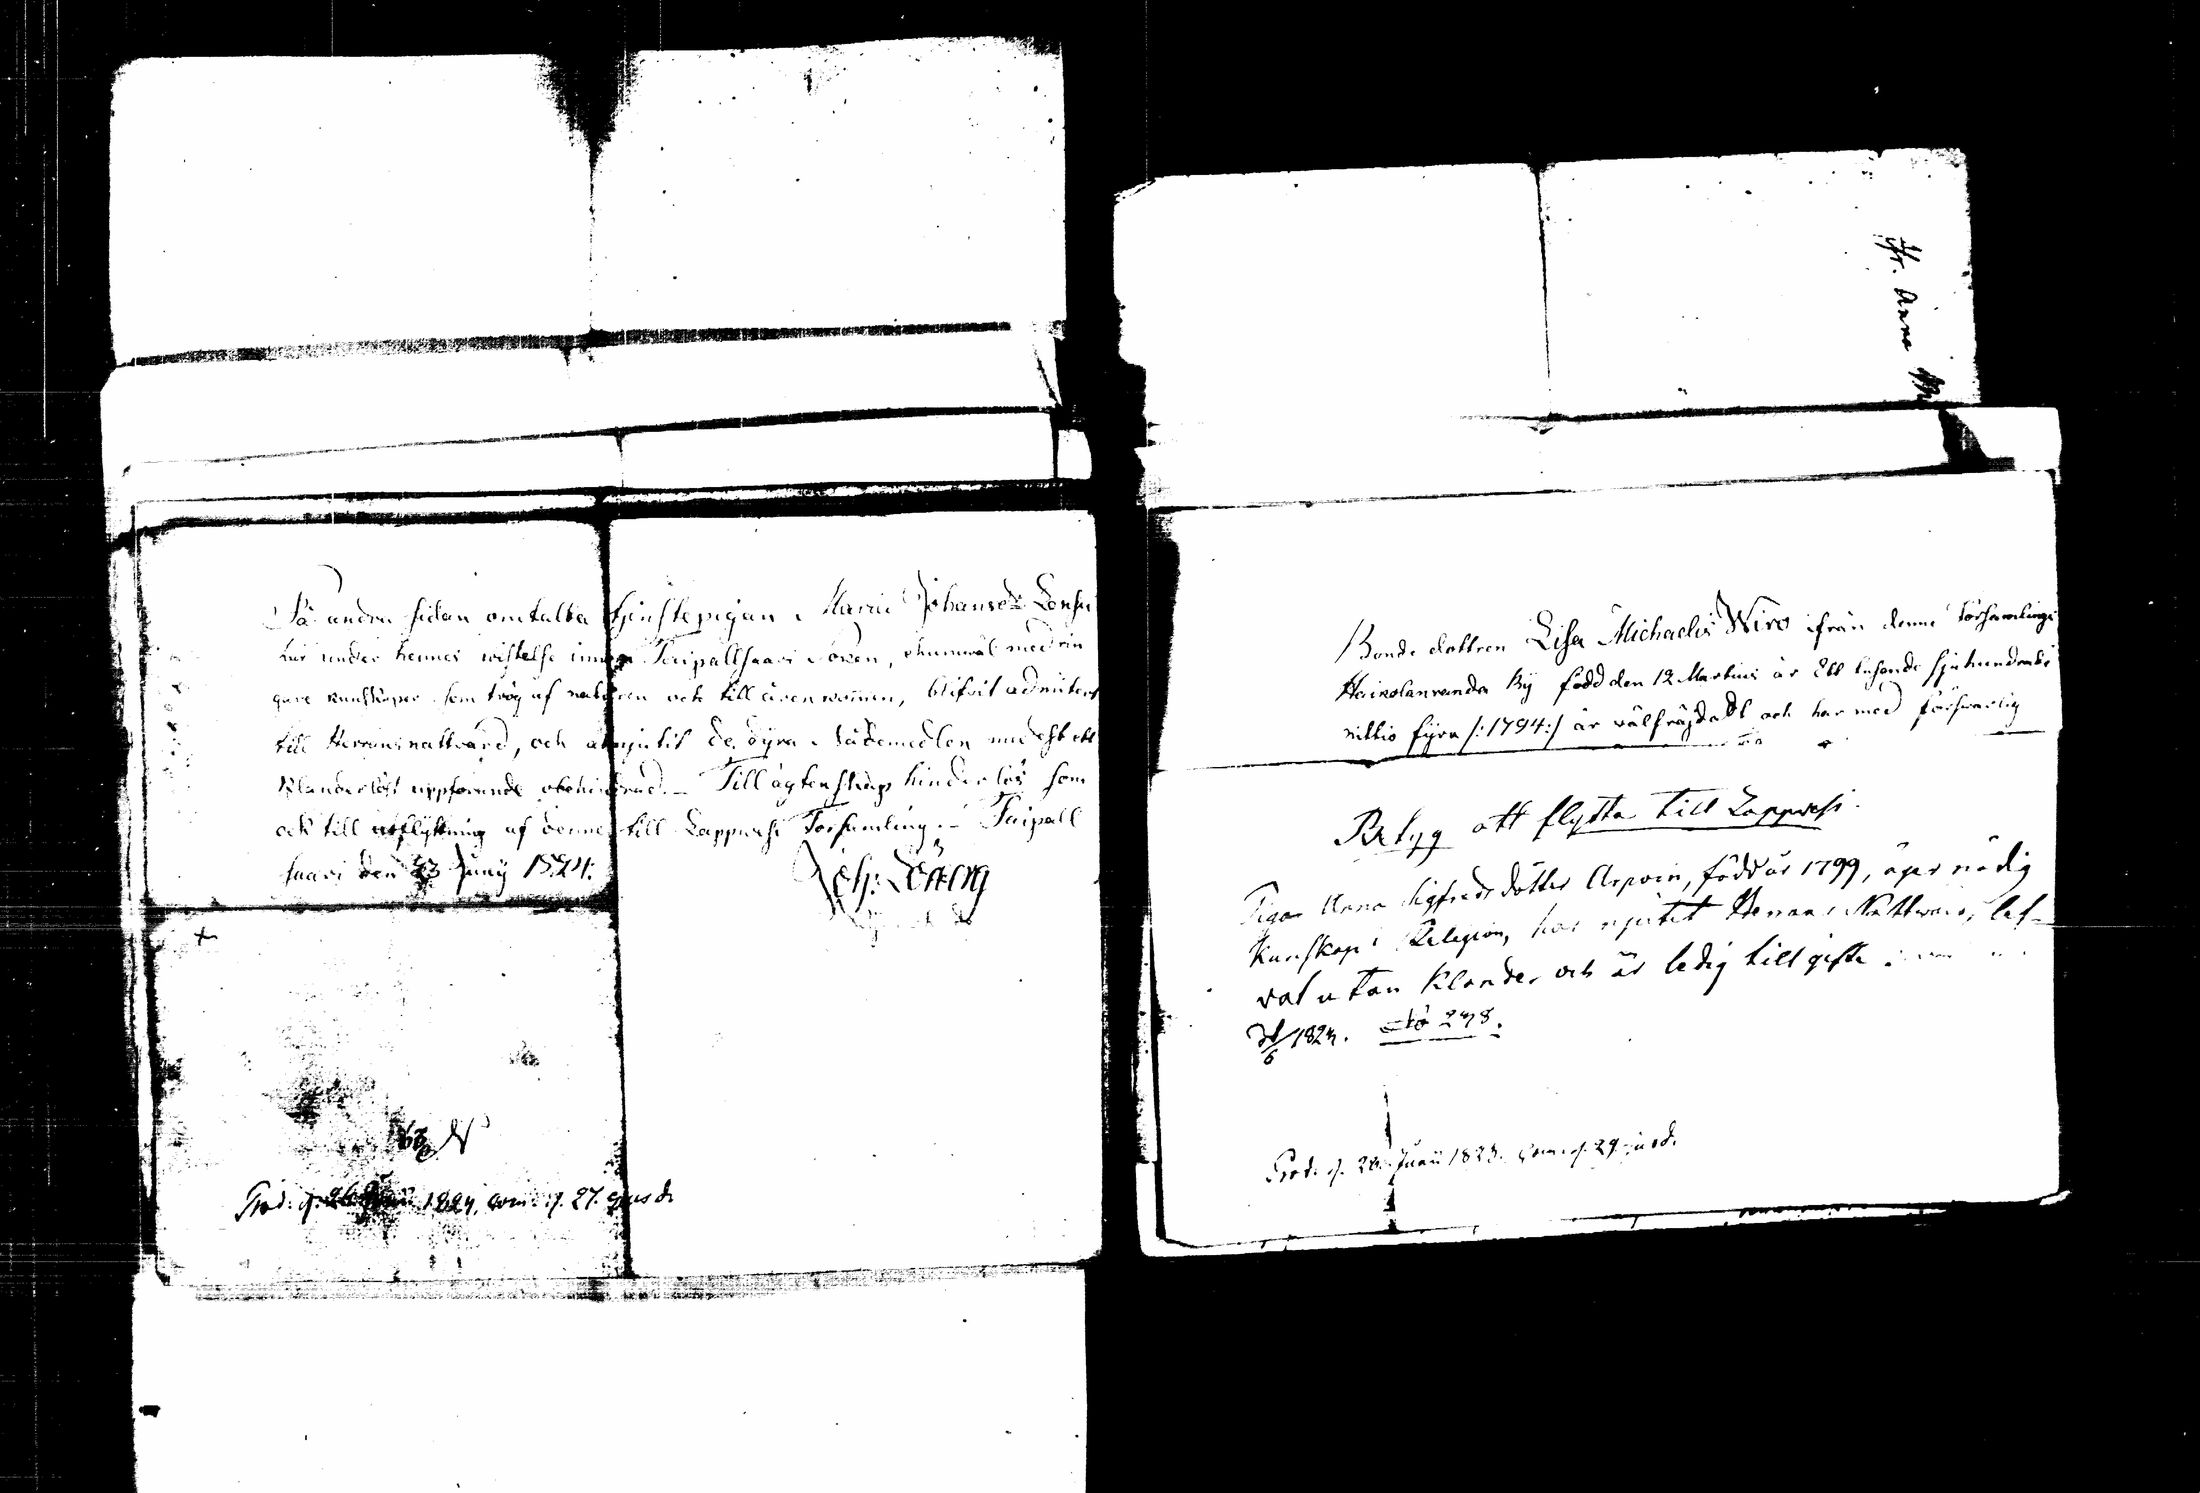 På andra sidan omtalta tjenstepigan Maria Johansdr Lensu
har under hennes wistelse innom Taipallsaari Soken, ehuruwäl med rin
gare kunskaper som trög af naturen och till åren kommen, blifvit admitterd
till Herrans nattvard, och åtnjutit de dyra Nådemedlen med ett
klanderlöst uppförande obehindrad. – Till ägtenskap hinderlös som
ock till utflyttning af denne till Lappvesi Församling. – Taipall
saari den 23 Juny 1824.
Joh:
63 N
Prod: d. 26 Junii 1824, com: d. 27. ejusd.
Hr. Anna
Bonde dottren Lisa Michaelsdr Wiro ifrån denne Församlings
Haikolanranda By född den 12 Martius år Ett tusende sjuhundrade
nittio fyra /:1794:/ är välfräjdad och har med försvarlig
Betyg att flytta till Lappvesi.
Pigan Anna Sigfrids dotter Arpoin, född år 1799, äger nödig
kunskap i Religion, har njutit Herrans Nattvard, lef-
vat utan klander och är ledig till gifte
/6 1824. 278.
Prod: d. 28. Junii 1823. com: d. 29 ejusd.